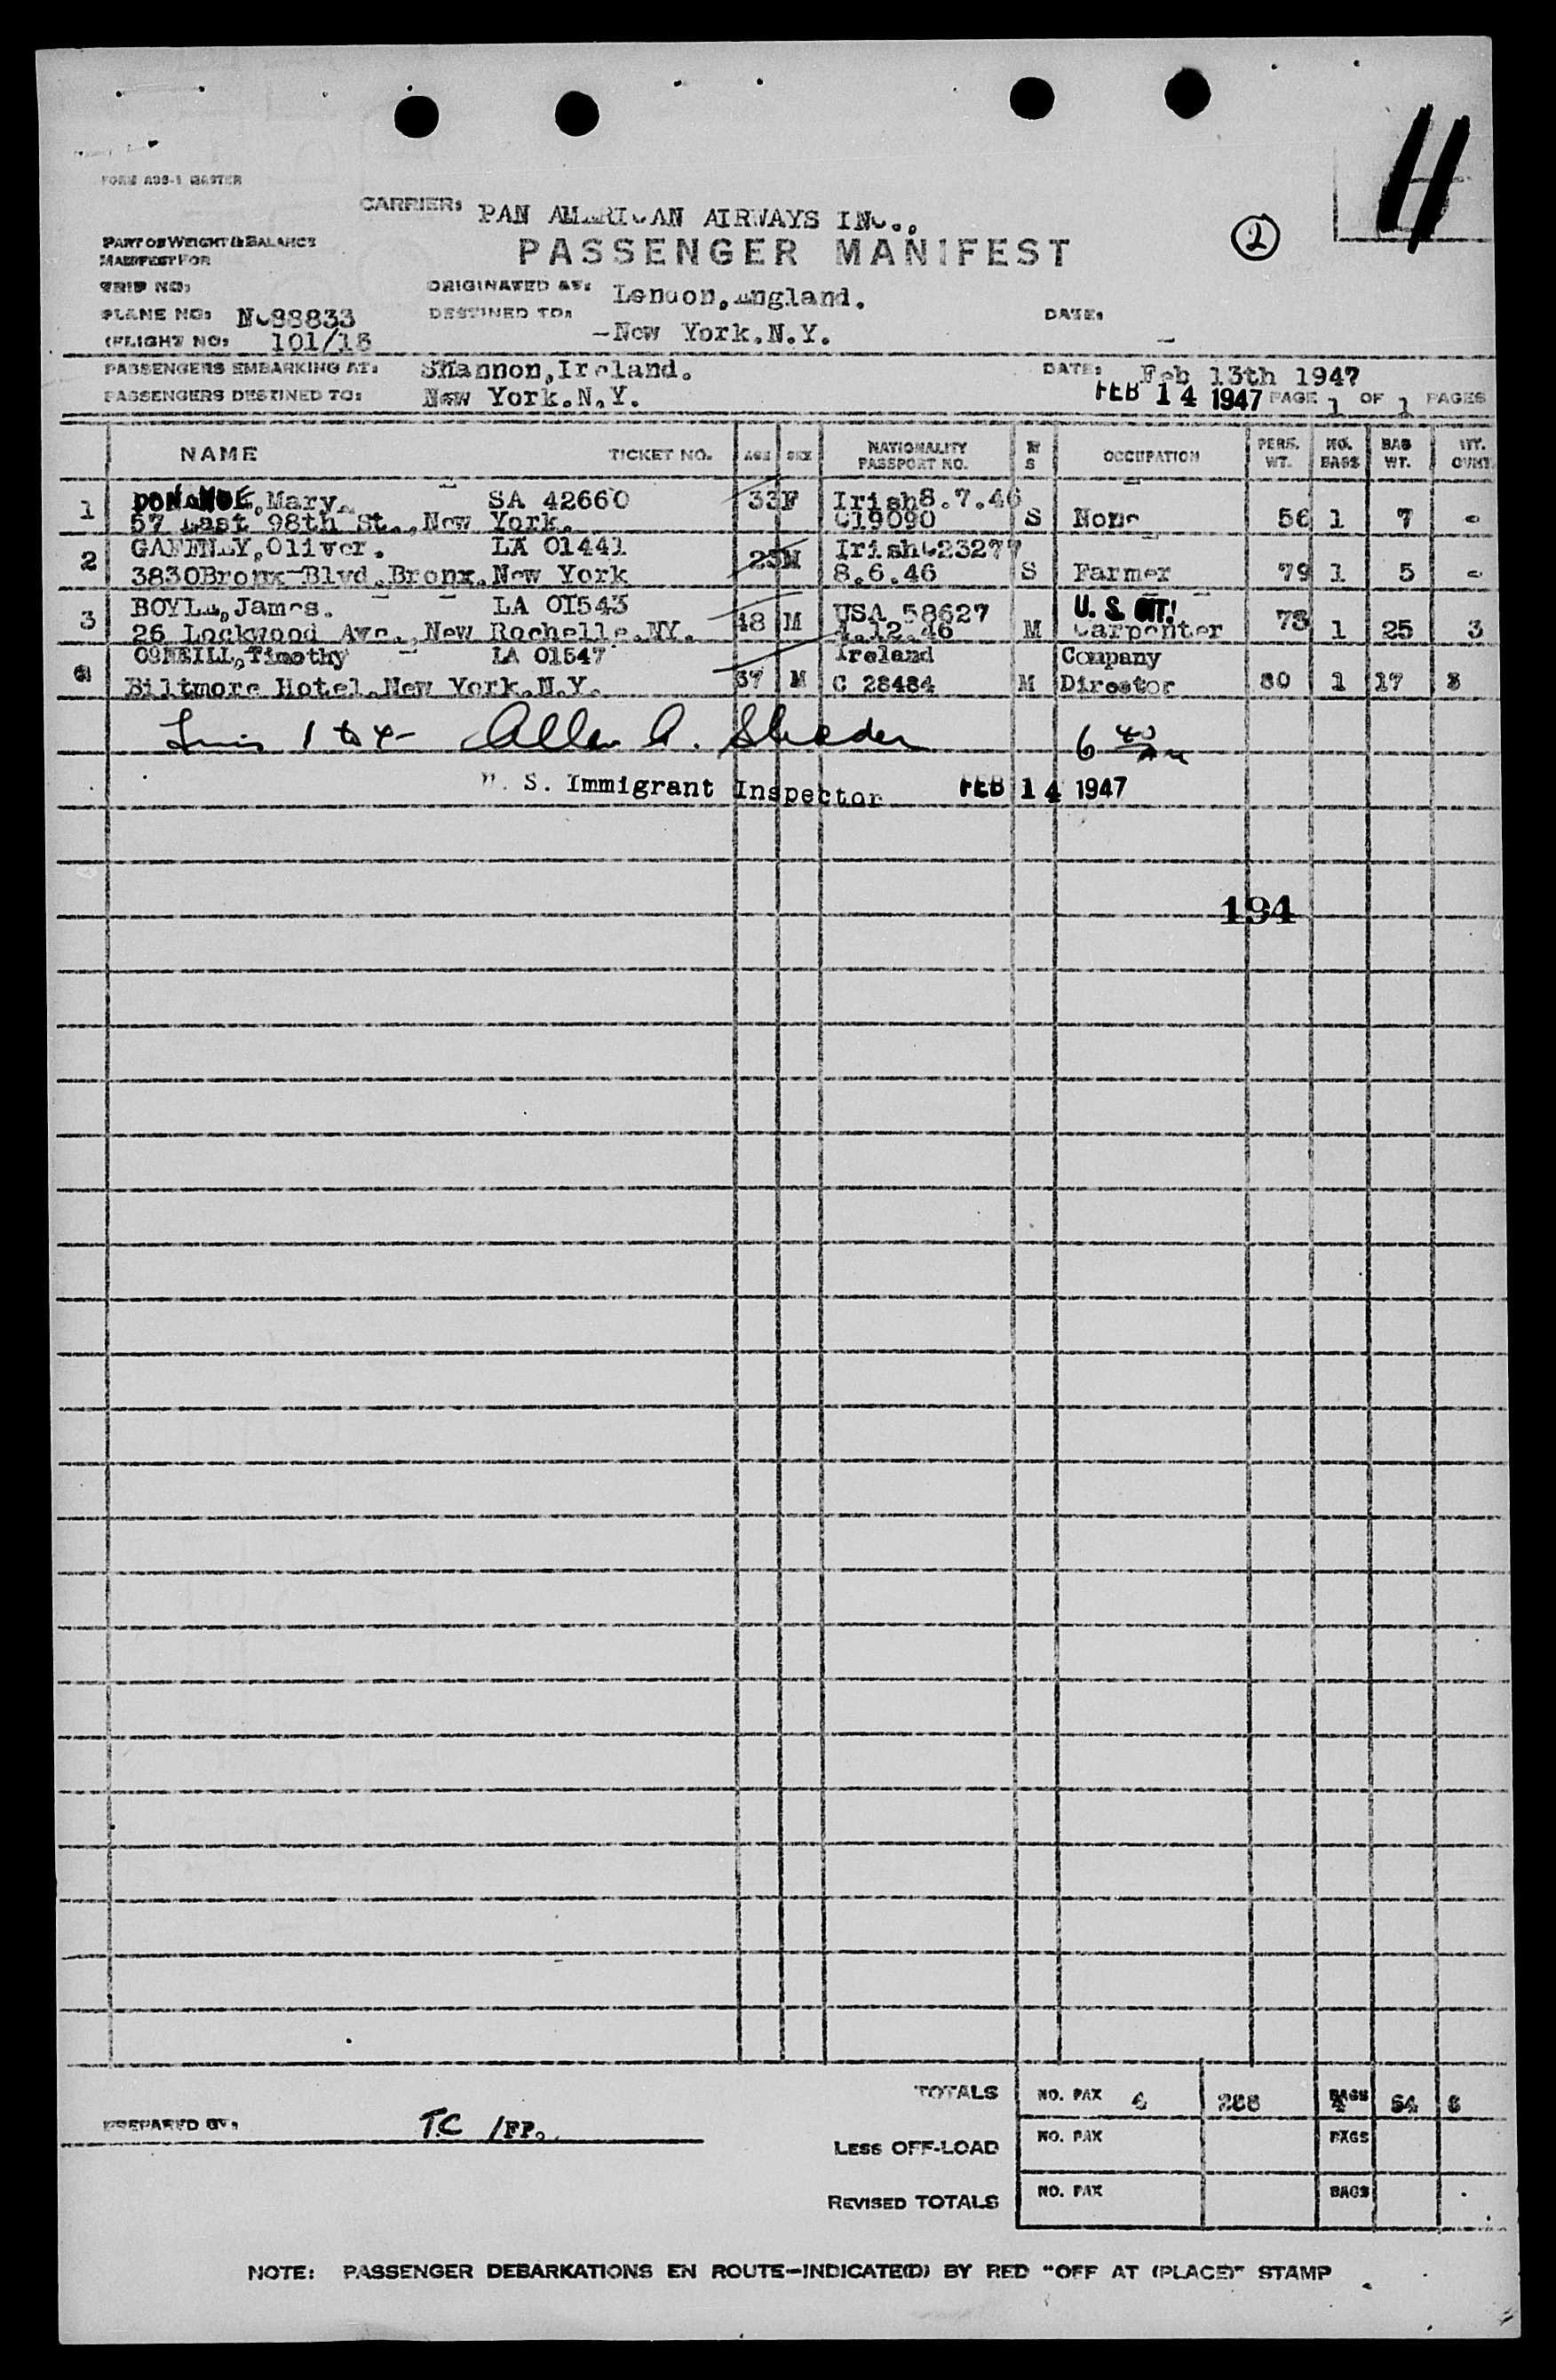 11
FORM ADS-1 MASTER
CARRIER: PAN AMERICAN AIRWAYS INC.,
PART OF WEIGHT & BALANCE
MANIFEST FOR
PASSENGER MANIFEST
2
TRIP NO:
ORIGINATED AT: London,England.
PLANE NO: NC88833
DESTINED TO: -New York.N.Y.
DATE:
(FLIGHT NO: 101/13
PASSENGERS EMBARKING AT: Shannon,Ireland.
DATE: Feb 13th 1947
PASSENGERS DESTINED TO: New York.N.Y.
FEB 14 1947 PAGE 1 OF 1 PAGES
NAME TICKET NO. AGE SEX NATIONALITY PASSPORT NO. M S OCCUPATION PERS. WT. NO. BAGS BAG WT.
1 DONAHUE,Mary. SA 42660 33 F Irish 8.7.46
57 East 98th St.,New York. C19090 S None 56 1 7 -
2 GAFFNEY,Oliver. LA 01441 23 M Irish C23277
3830 Bronx Blvd.Bronx.New York 8.6.46 S Farmer 79 1 5 -
3 BOYLE,James. LA 01543 48 M USA 58627 U.S. CIT!
26 Lockwood Ave.,New Rochelle.NY. 4.12.46 M Carpenter 73 1 25 3
O'NEILL,Timothy LA 01547 Ireland Company
Biltmore Hotel.New York.N.Y. 37 M C 28484 M Director 80 1 17 3
1 to 4 Allen A. 6 40 AM
U. S. Immigrant Inspector FEB 14 1947
194
TOTALS NO. PAX 4 288 BAGS 4 54 6
PREPARED BY: T.C /FP.
LESS OFF-LOAD NO. PAX BAGS
REVISED TOTALS NO. PAX BAGS
NOTE: PASSENGER DEBARKATIONS EN ROUTE-INDICATE(D) BY RED "OFF AT (PLACE)" STAMP